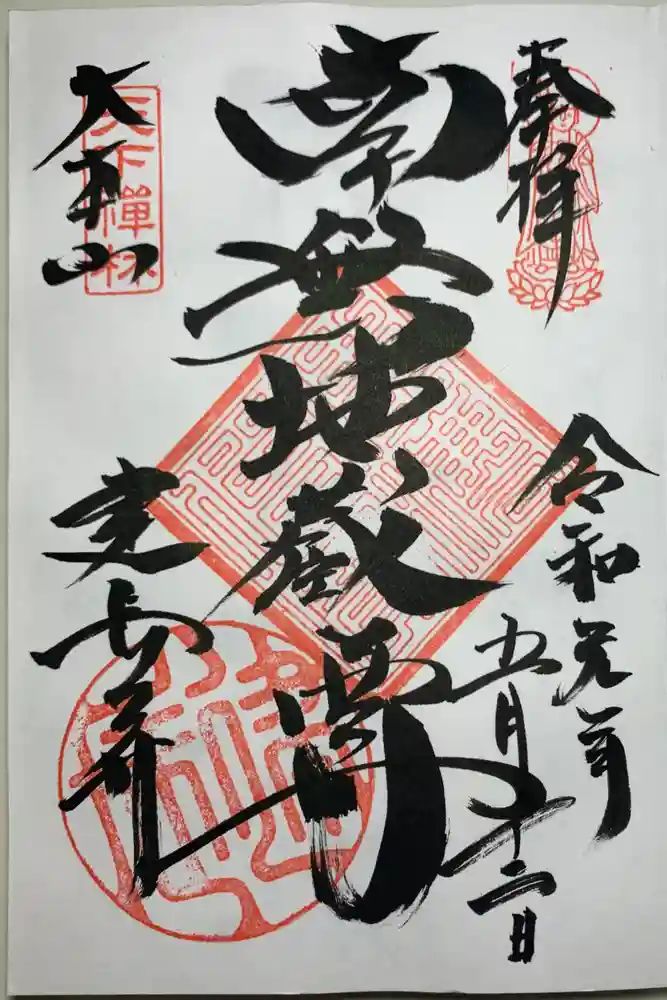 奉拝
令和元年
五月十二日
南無地蔵尊
大本山
建長寺
天下禪林